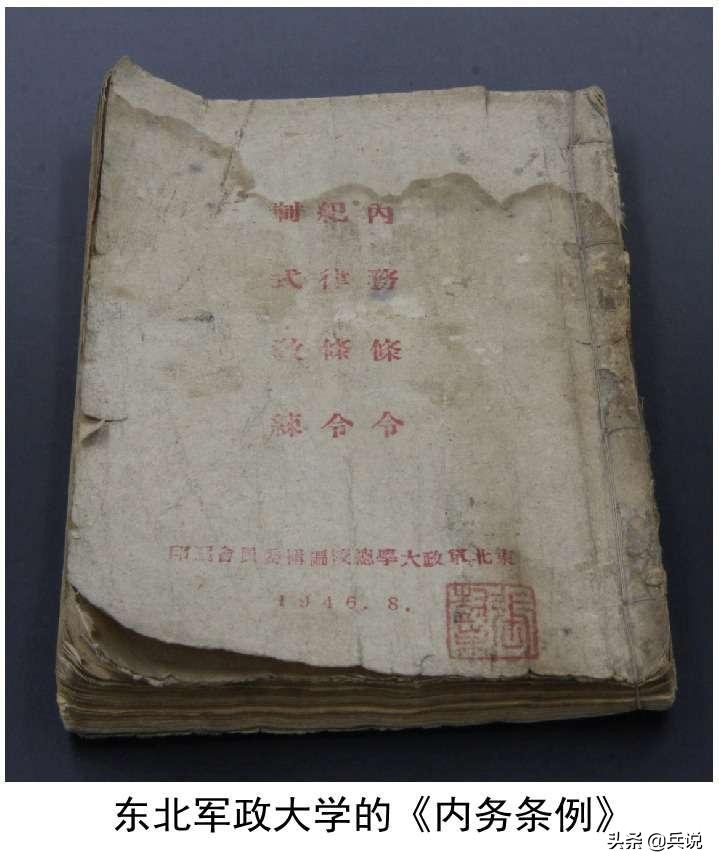 內務條令
紀律條令
制式教練
東北軍政大學總校編輯委員會印
1946.8.
东北军政大学的《内务条例》
头条 @兵说